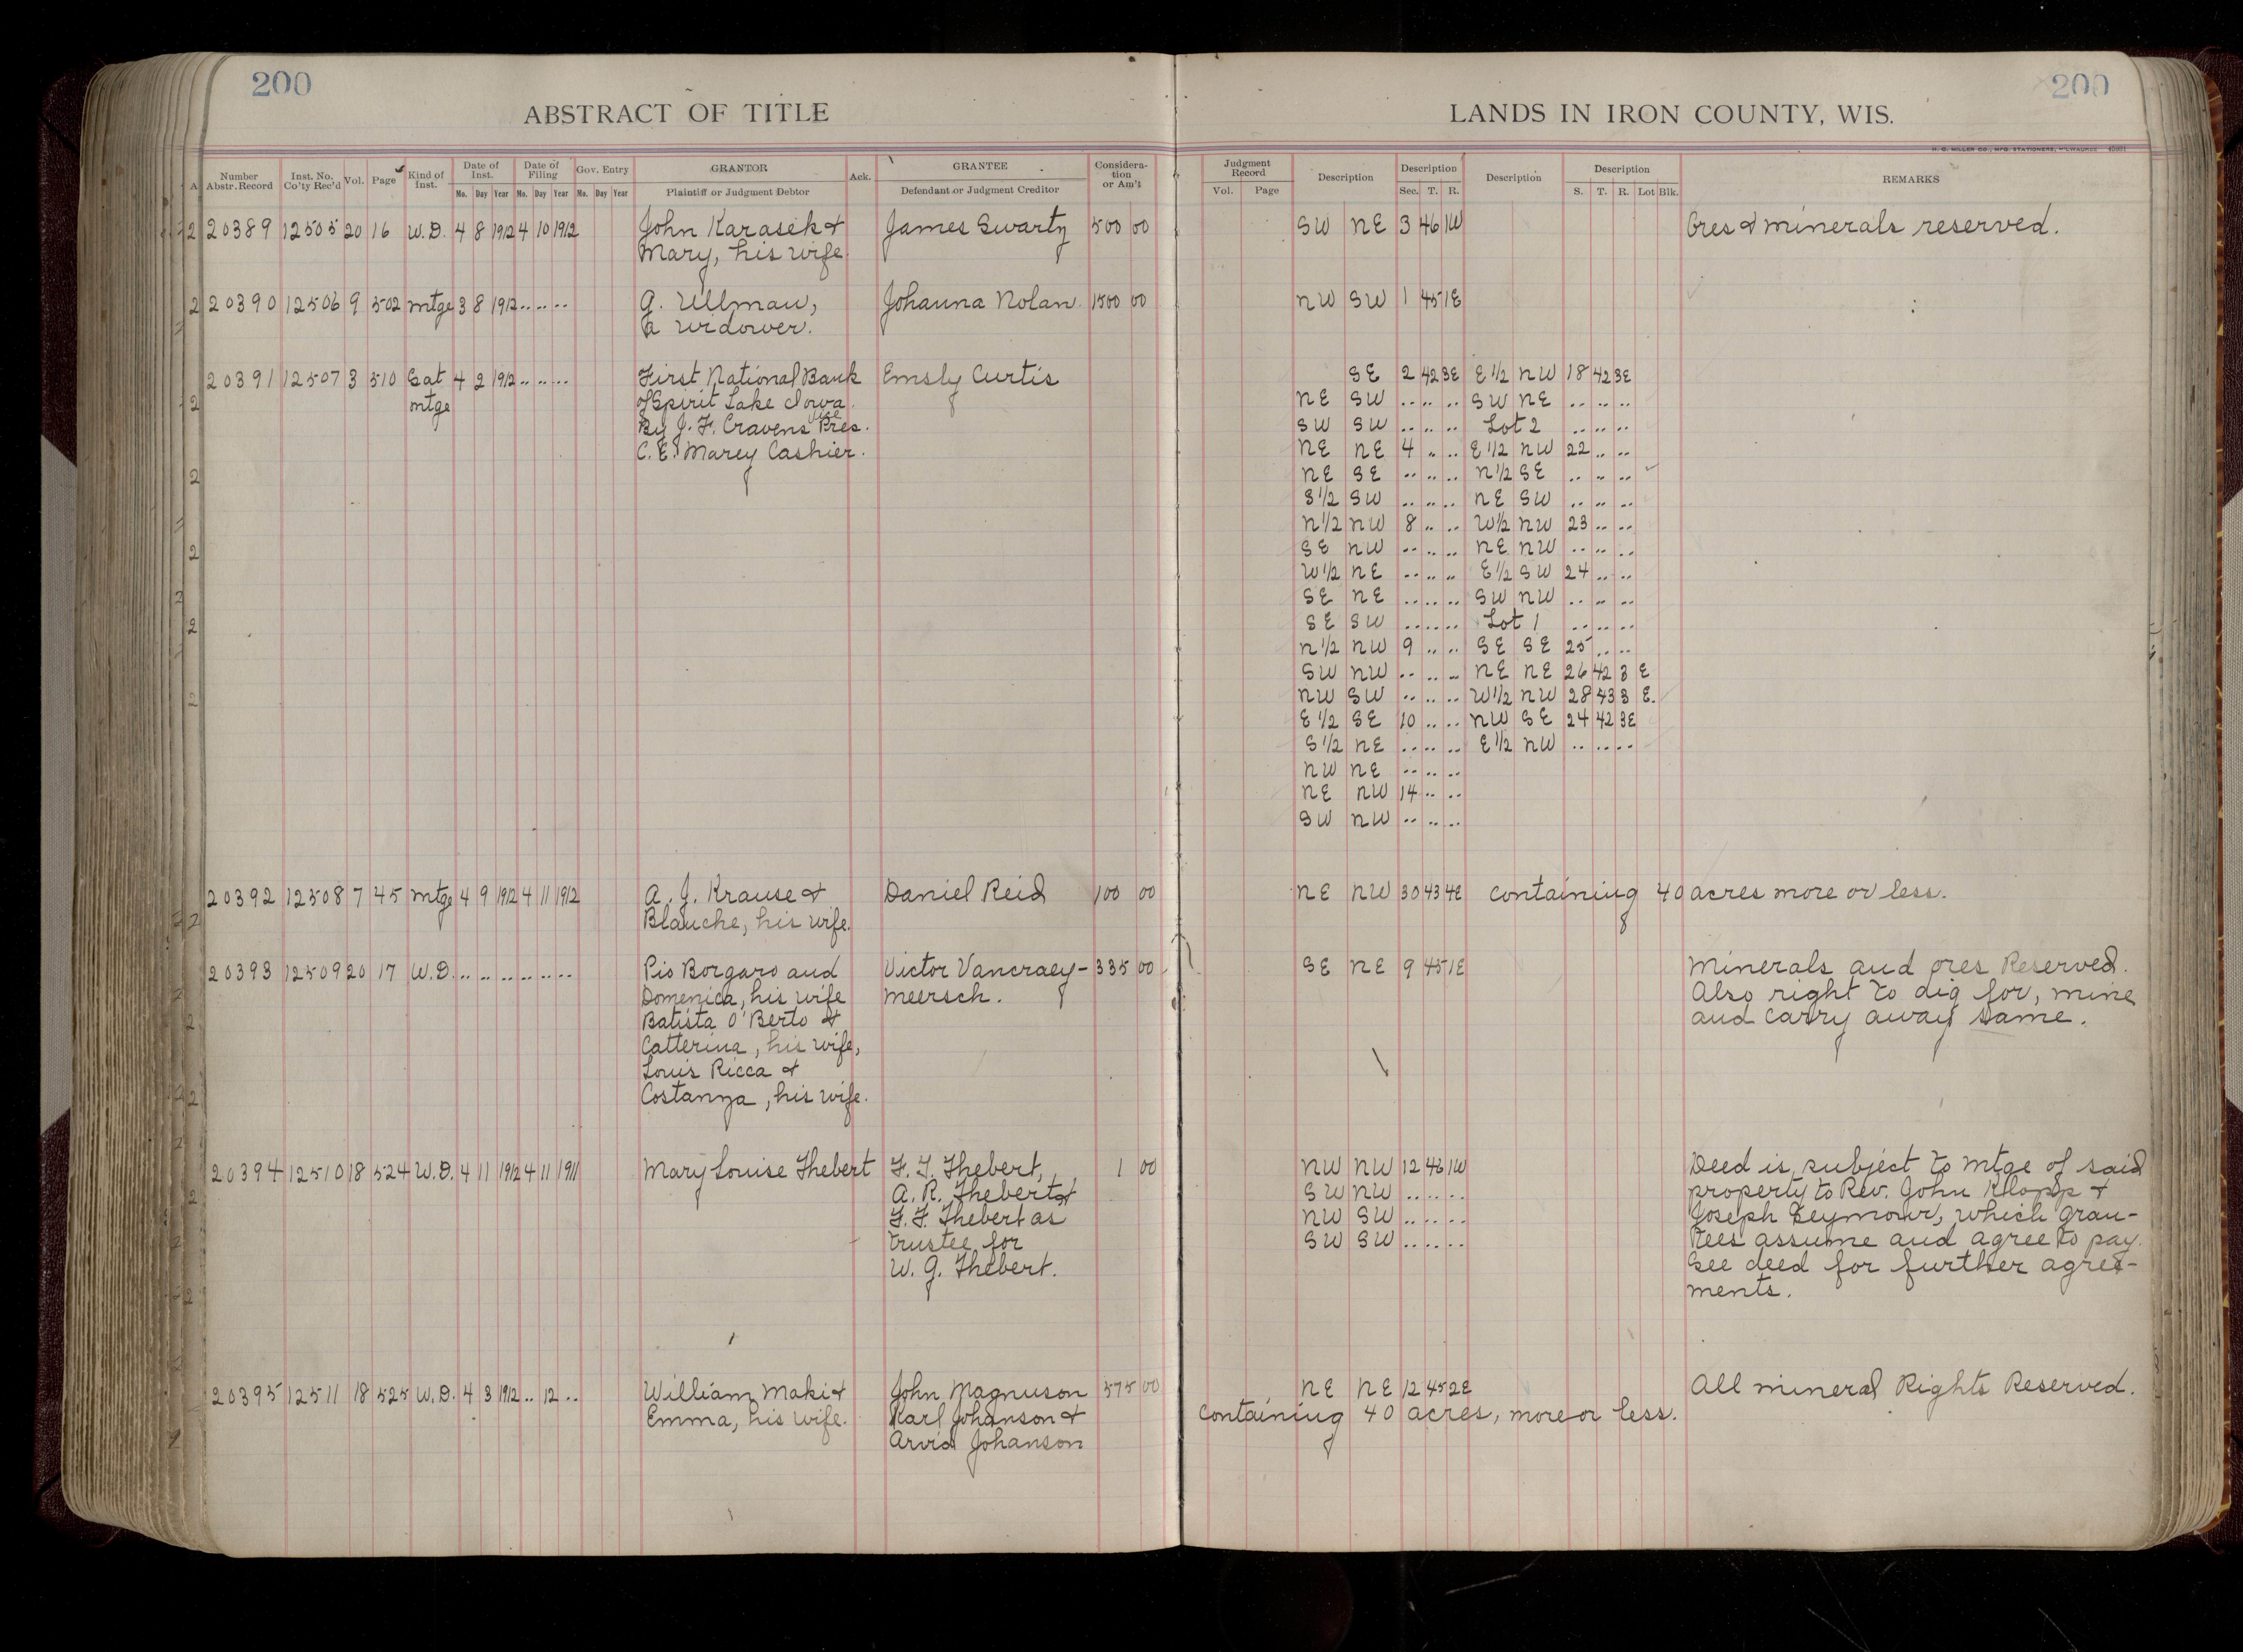 200
200
ABSTRACT OF TITLE
LANDS IN IRON COUNTY, WIS.
H. C. MILLER CO., MFG. STATIONERS, MILWAUKEE
Number Abstr. Record Inst. No. Co'ty Rec'd Vol. Page Kind of Inst. Date of Inst. Mo. Day Year Date of Filing Mo. Day Year Gov. Entry Mo. Day Year GRANTOR Plaintiff or Judgment Debtor Ack. GRANTEE Defendant or Judgment Creditor Considera-tion or Am't Judgment Record Vol. Page Description Description Sec. T. R. Description Description S. T. R. Lot Blk. REMARKS
20389 12505 20 16 W.D. 4 8 1912 4 10 1912 John Karasek & James Swarty 500 00 SW NE 3 46 1W Ores & minerals reserved.
Mary, his wife.
20390 12506 9 502 mtge 3 8 1912 .. .. .. G. Ullman, Johanna Nolan 1500 00 NW SW 1 45 1E
a widower.
20391 12507 3 510 Sat 4 2 1912 .. .. .. First National Bank Emsly Curtis SE 2 42 3E E1/2 NW 18 42 3E
mtge of Spirit Lake Iowa. NE SW .. .. .. SW NE .. .. ..
By J. F. Cravens Vice Pres. SW SW .. .. .. Lot 2 .. .. ..
C. E. Marey Cashier. NE NE 4 .. .. E1/2 NW 22 .. ..
NE SE .. .. .. N1/2 SE .. .. ..
S1/2 SW .. .. .. NE SW .. .. ..
N1/2 NW 8 .. .. W1/2 NW 23 .. ..
SE NW .. .. .. NE NW .. .. ..
W1/2 NE .. .. .. E1/2 SW 24 .. ..
SE NE .. .. .. SW NW .. .. ..
SE SW .. .. .. Lot 1 .. .. ..
N1/2 NW 9 .. .. SE SE 25 .. ..
SW NW .. .. .. NE NE 26 42 3 E
NW SW .. .. .. W1/2 NW 28 43 3 E.
E1/2 SE 10 .. .. NW SE 24 42 3E
S1/2 NE .. .. .. E1/2 NW .. .. ..
NW NE .. .. ..
NE NW 14 .. ..
SW NW .. .. ..
20392 12508 7 45 mtge 4 9 1912 4 11 1912 A. J. Krause & Daniel Reid 100 00 NE NW 30 43 4E containing 40 acres more or less.
Blanche, his wife.
20393 12509 20 17 W.D. .. .. .. .. .. .. Pio Borgaro and Victor Vancraey- 335 00 SE NE 9 45 1E Minerals and ores Reserved.
Domenica, his wife meersch. Also right to dig for, mine
Batista O'Berto & and carry away same.
Catterina, his wife,
Louis Ricca &
Costanza, his wife.
20394 12510 18 524 W.D. 4 11 1912 4 11 1911 Mary Louise Thebert F. J. Thebert, 1 00 NW NW 12 46 1W Deed is subject to mtge of said
A. R. Thebert & SW NW .. .. .. property to Rev. John Klopp &
F. F. Thebert as NW SW .. .. .. Joseph Seymour, which gran-
trustee for SW SW .. .. .. tees assume and agree to pay.
W. G. Thebert. See deed for further agree-
ments.
20395 12511 18 525 W.D. 4 3 1912 .. 12 .. William Maki & John Magnuson 575 00 NE NE 12 45 2E All mineral Rights Reserved.
Emma, his wife. Karl Johanson & containing 40 acres, more or less.
Arvid Johanson